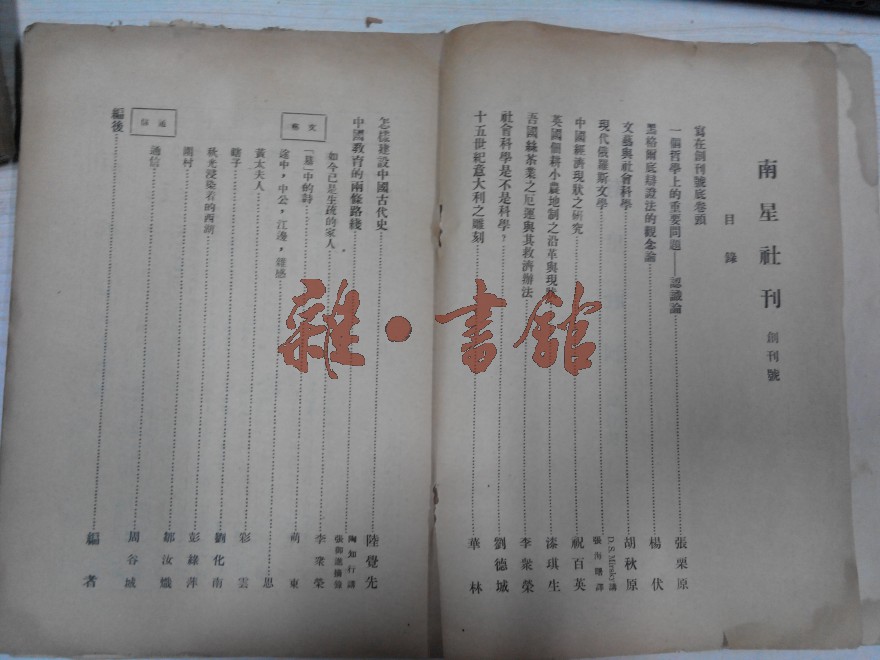 南星社刊 創刊號
目錄
寫在創刊號底卷頭
一個哲學上的重要問題——認識論 張栗原
黑格爾底辯證法的觀念論 楊伏
文藝與社會科學 胡秋原
現代俄羅斯文學 D.S. Mirsky講 張海曙譯
中國經濟現狀之研究 祝百英
英國個耕小農地制之沿革與現狀 漆琪生
吾國絲茶業之厄運與其救濟辦法 李衆榮
社會科學是不是科學? 劉德城
十五世紀意大利之雕刻 華林
怎樣建設中國古代史 陸覺先
中國教育的兩條路綫 陶知行講 張御進摘錄
文藝
如今已是生疏的家人 李衆榮
「墓」中的詩 萌東
途中,中公,江邊,雜感 思
黃太夫人 彩雲
瞎子 劉化南
秋光浸染着的西湖 彭綠萍
村
通信
通信 周谷城
編後 編者
雜·書館